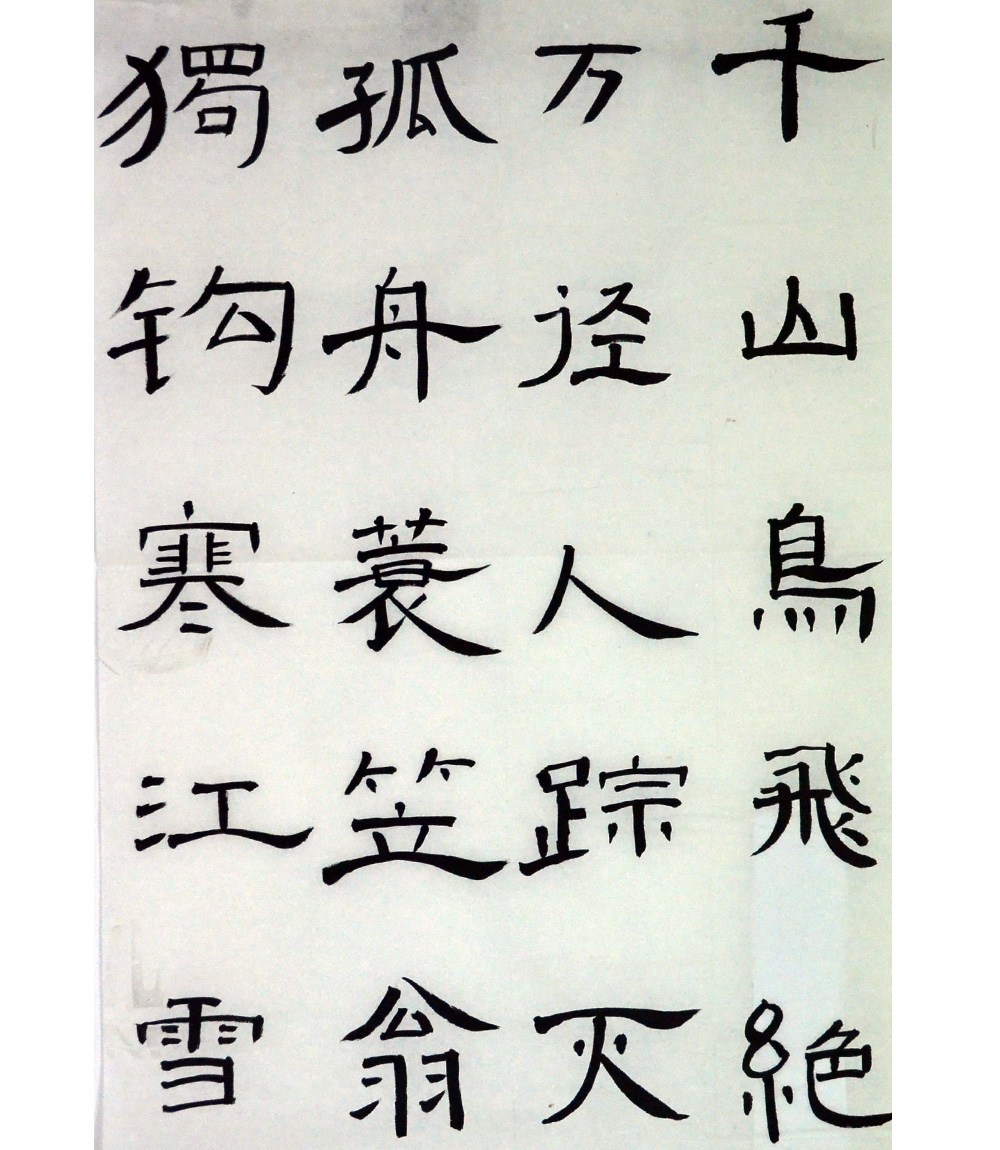 千山鳥飛絶
万径人踪灭
孤舟蓑笠翁
獨钩寒江雪